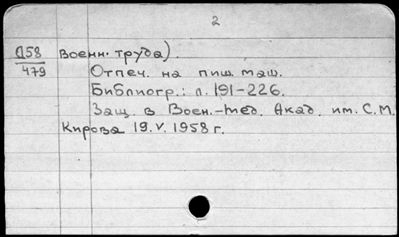 2
Д58 Военн. труда).
479 Отпеч. на пиш. маш.
Библиогр.: л. 191-226.
Защ. в Воен.-мед. Акад. им. С.М.
Кирова 19.V.1958 г.